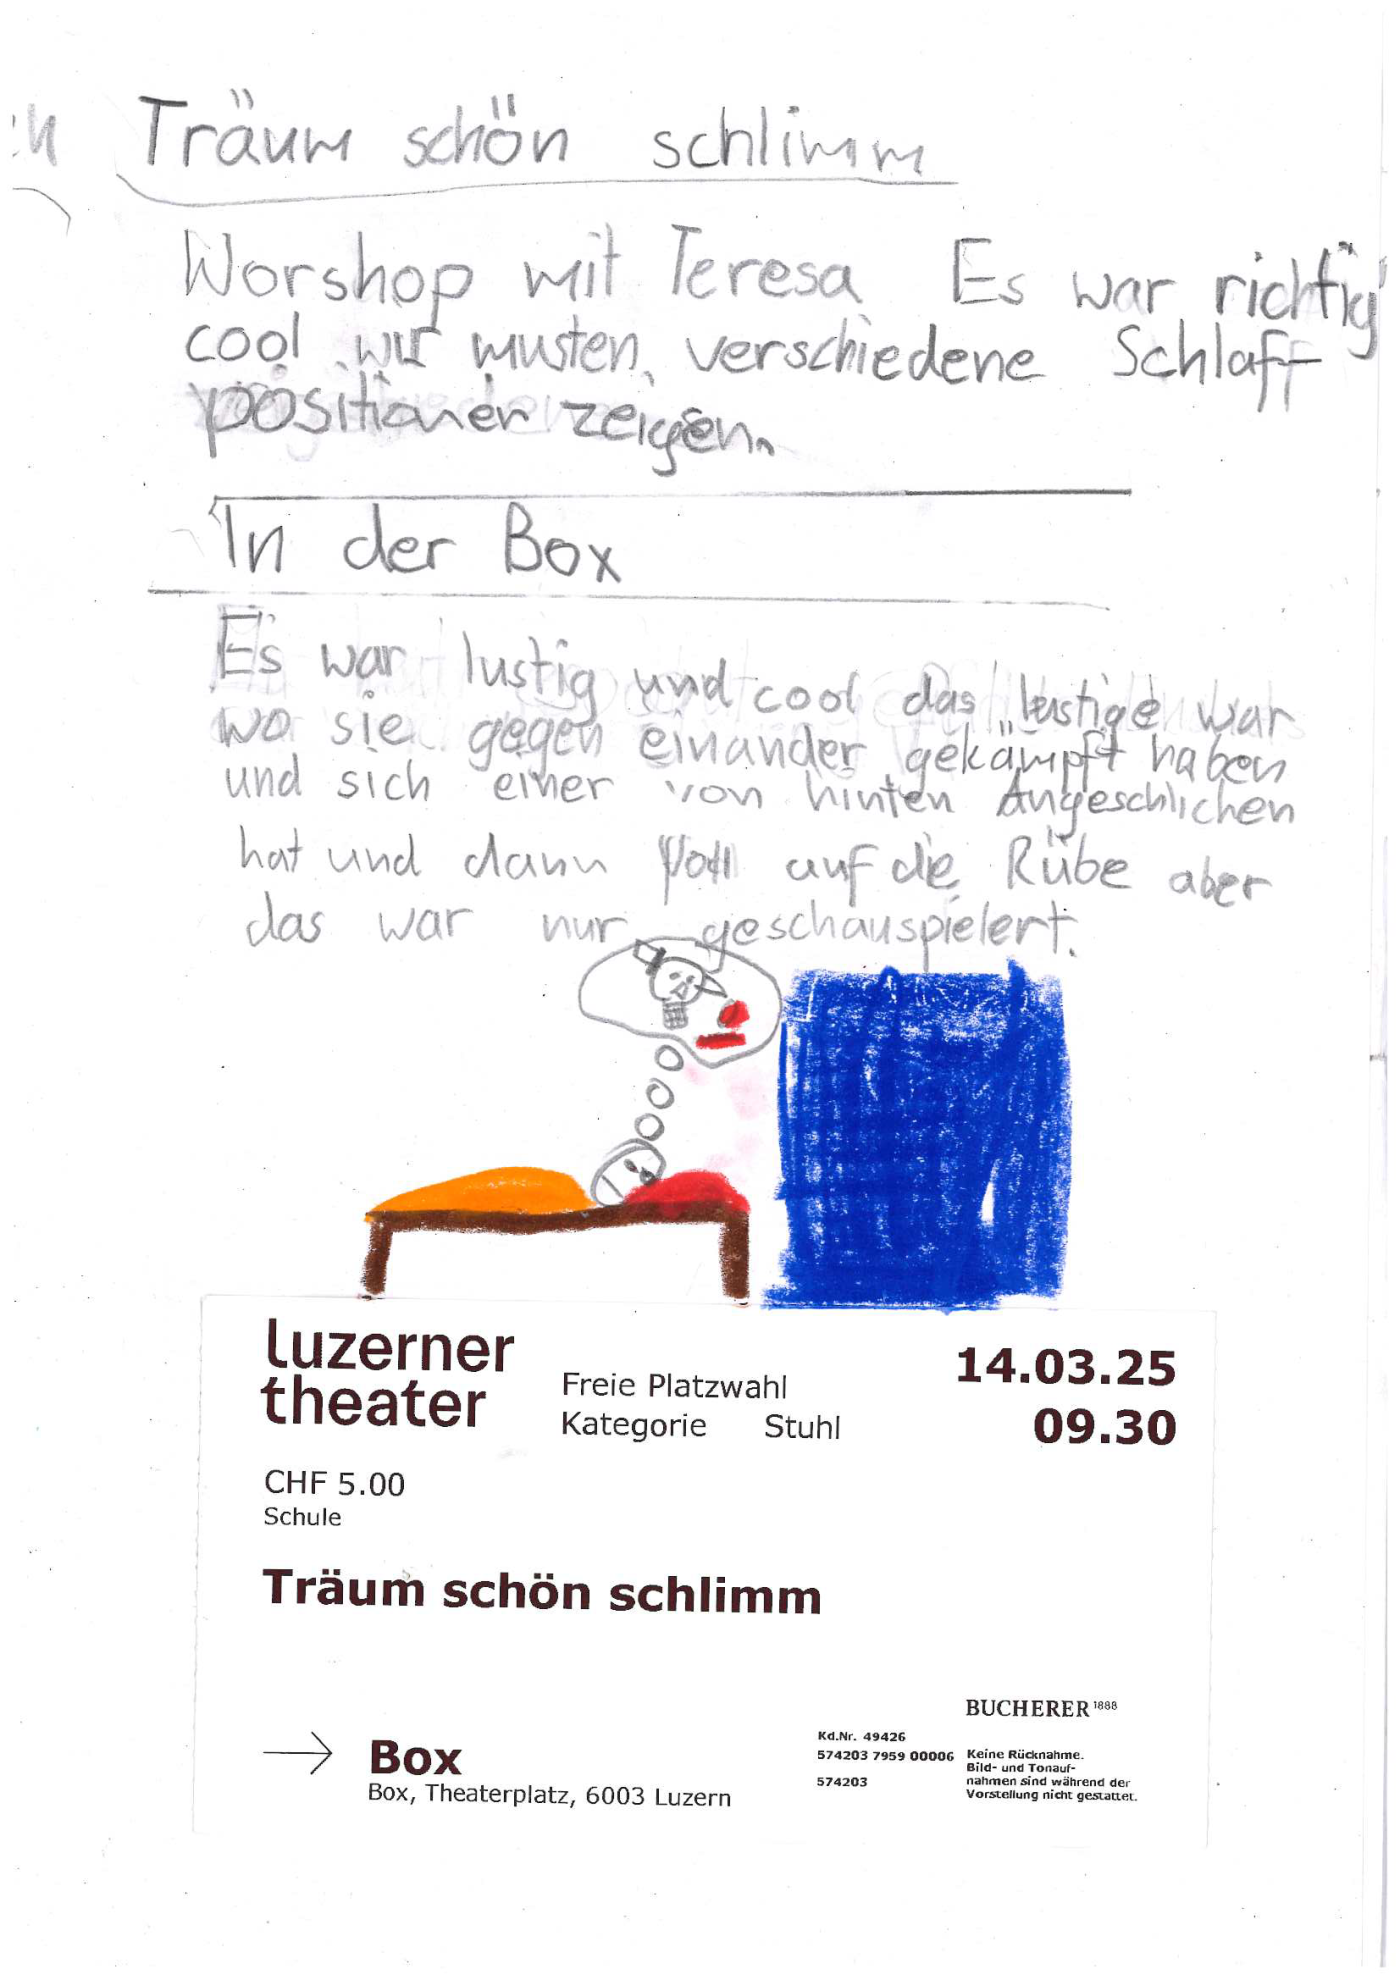 Träum schön schlimm
Worshop mit Teresa Es war richtig
cool wir musten verschiedene Schlaff
positionen zeigen.
In der Box
Es war lustig und cool das lustige war
wo sie gegen einander gekämpft haben
und sich einer von hinten Angeschlichen
hat und dann Voll auf die Rübe aber
das war nur geschauspielert.
luzerner
theater
Freie Platzwahl
Kategorie Stuhl
14.03.25
09.30
CHF 5.00
Schule
Träum schön schlimm
→ Box
Box, Theaterplatz, 6003 Luzern
Kd.Nr. 49426
574203 7959 00006
574203
BUCHERER 1888
Keine Rücknahme.
Bild- und Tonauf-
nahmen sind während der
Vorstellung nicht gestattet.